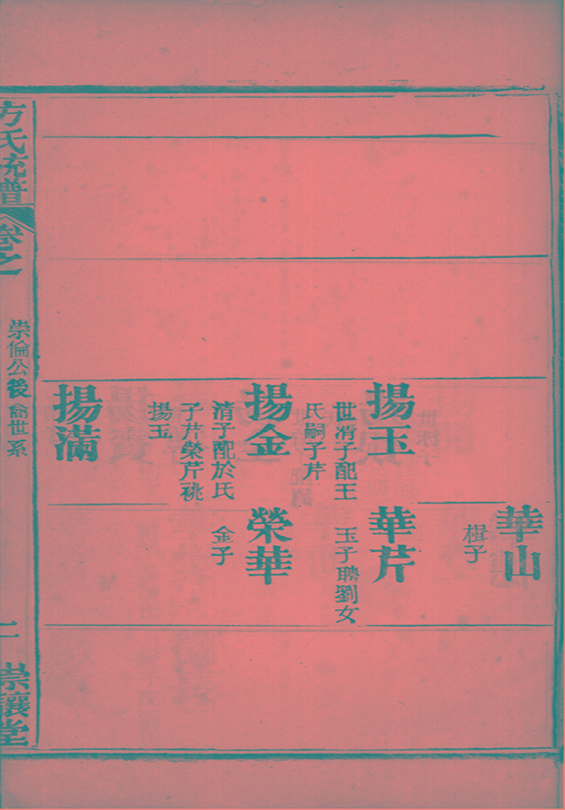 華山
楫子
揚玉
世清子配王
氏嗣子芹
華芹
玉子聘劉女
揚金
清子配於氏
子芹榮芹祧
揚玉
榮華
金子
揚滿
方氏統譜
卷之
崇倫公後裔世系
二
崇讓堂